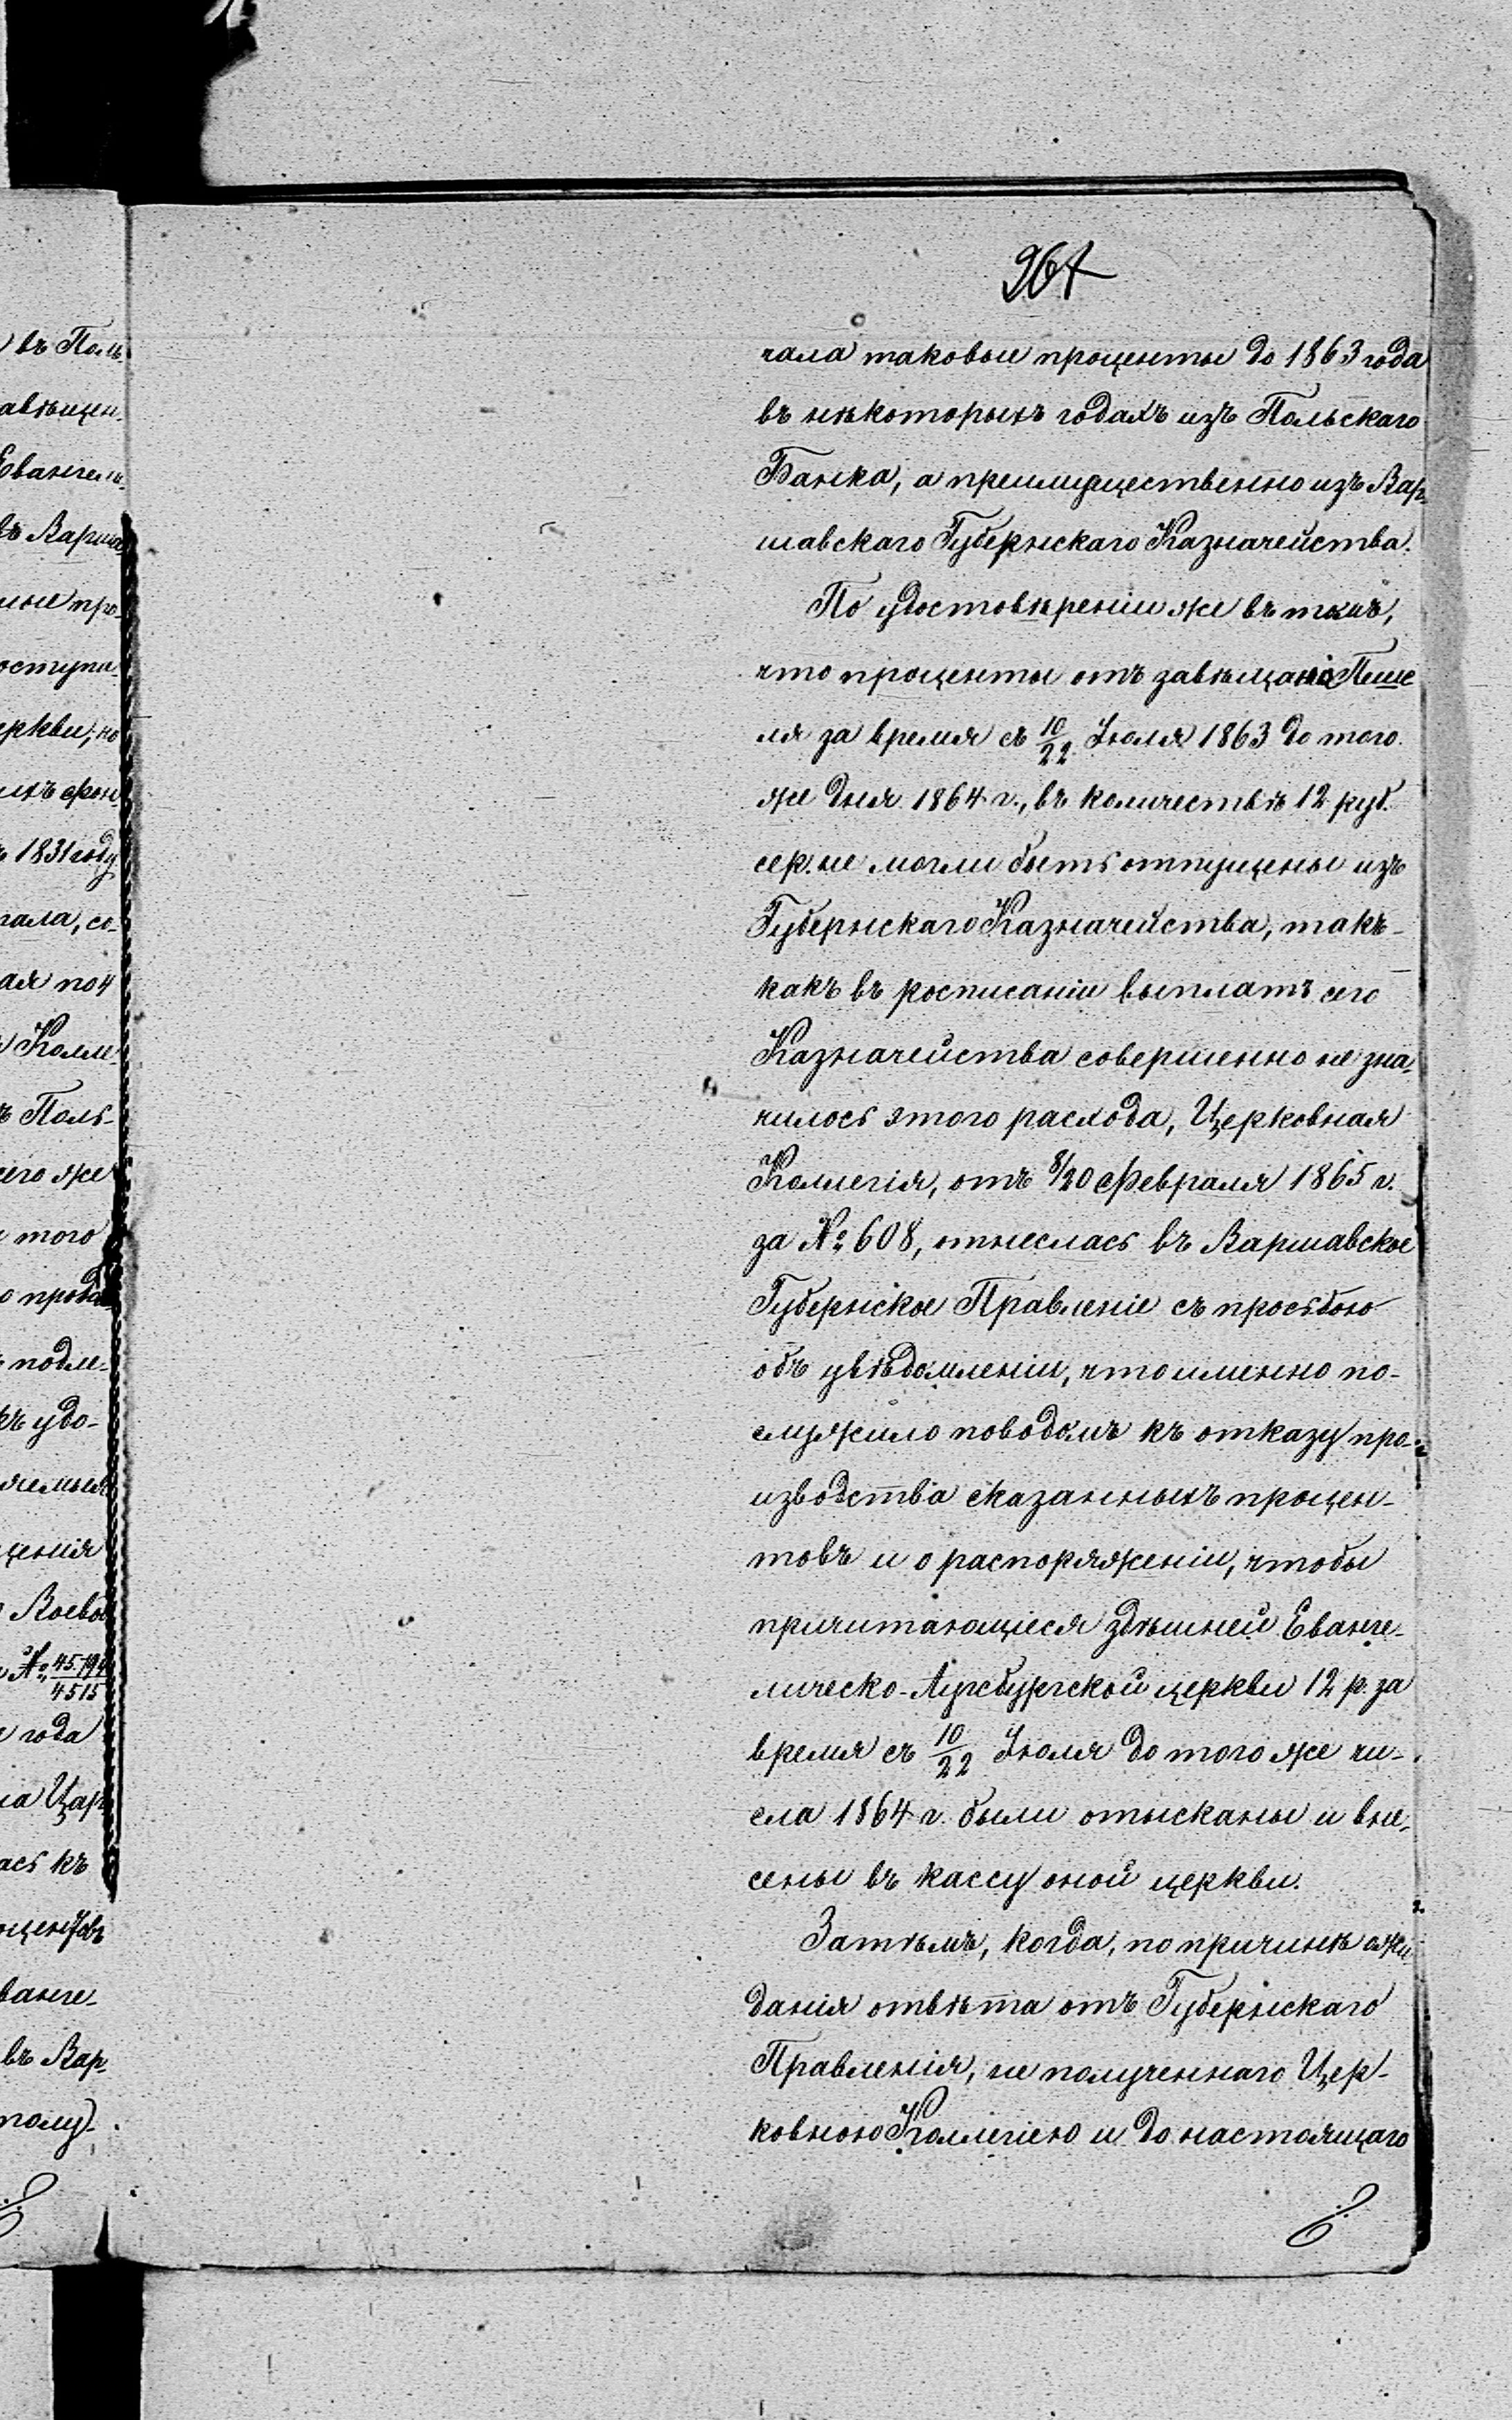 264
чала таковые проценты до 1863 года
въ нѣкоторыхъ годахъ изъ Польскаго
Банка, а преимущественно изъ Вар-
шавскаго Губернскаго Казначейства.
По удостовѣреніи же въ томъ,
что проценты отъ завѣщанія Пше
ля за время съ 10/22 Іюля 1863 до того
же дня 1864 г., въ количествѣ 12 руб.
сер. не могли быть отпущены изъ
Губернскаго Казначейства, такъ-
какъ въ росписаніи выплатъ сего
Казначейства совершенно не зна-
чилось этого расхода, Церковная
Коллегія, отъ 8/20 Февраля 1865 г.
за № 608, отнеслась въ Варшавское
Губернское Правленіе съ просьбою
объ увѣдомленіи, что именно по-
служило поводомъ къ отказу про-
изводства сказанныхъ процен-
товъ и о распоряженіи, чтобы
причитающіеся здѣшней Еванге-
лическо-Аугсбургской церкви 12 р. за
время съ 10/22 Іюля до того же чи-
сла 1864 г. были отысканы и вне-
сены въ кассу оной церкви.
Затѣмъ, когда, по причинѣ ожи
данія отвѣта отъ Губернскаго
Правленія, не полученнаго Цер-
ковною Коллегіею и до настоящаго